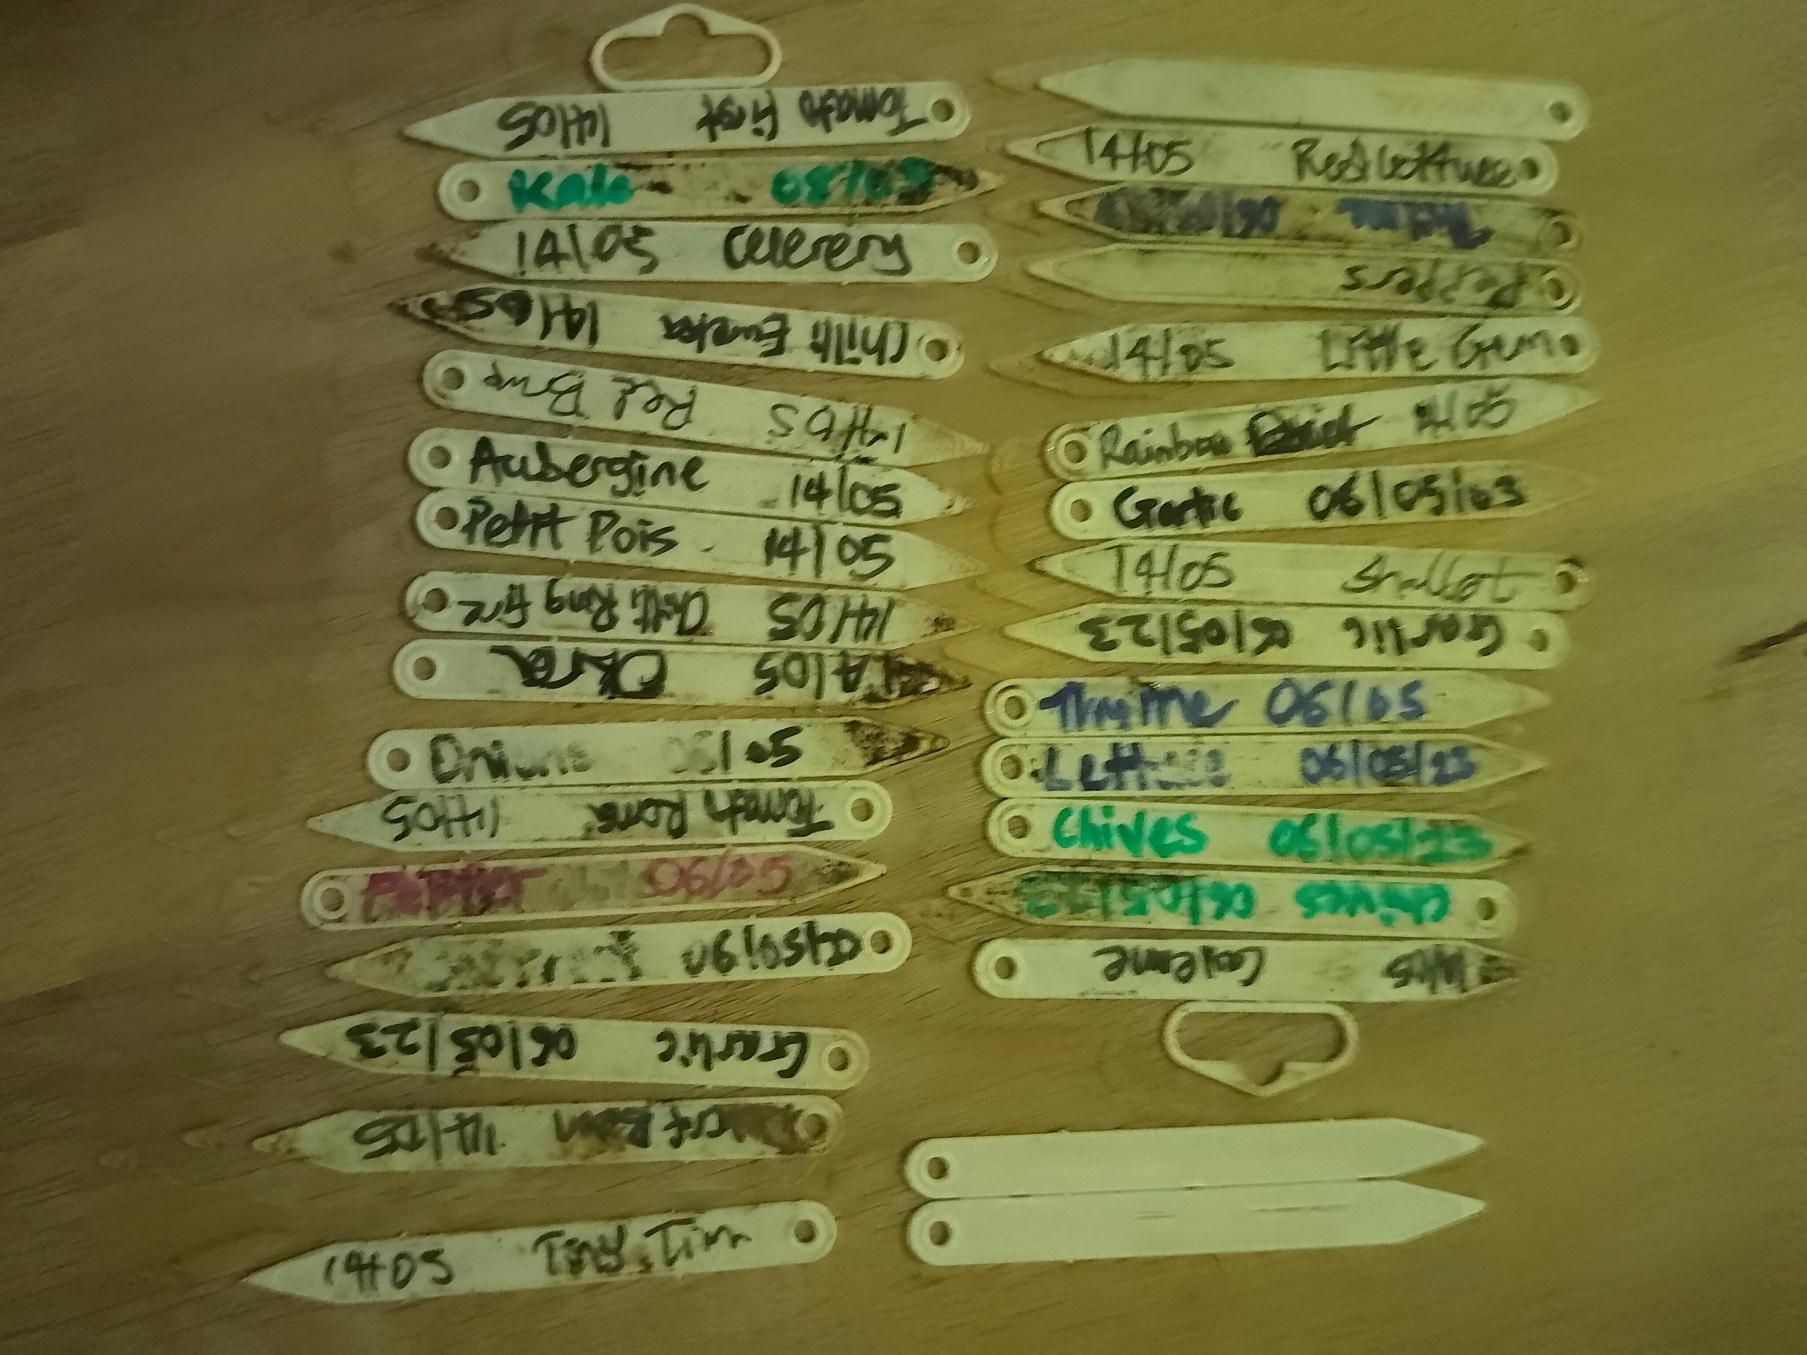 Tomato First 14/05
Kale 08/05
14/05 Celerery
Chilli Eureka 14/05
Red Bmp 14/05
Aubergine 14/05
Petit Pois 14/05
Chilli Ring Fire 14/05
Okra 14/05
Onions 05
Tomato Roma 14/05
06/05
06/05/23
Garlic 06/05/23
14/05
14/05 Tiny Tim
14/05 Red Lettuce
Thyme
Peppers
14/05 Little Gem
Rainbow 14/05
Garlic 06/05/03
14/05 Shallot
Garlic 06/05/23
Thyme 06/05
Lettuce 06/05/23
Chives 06/05/23
Chives 06/05/23
Cayenne 14/05